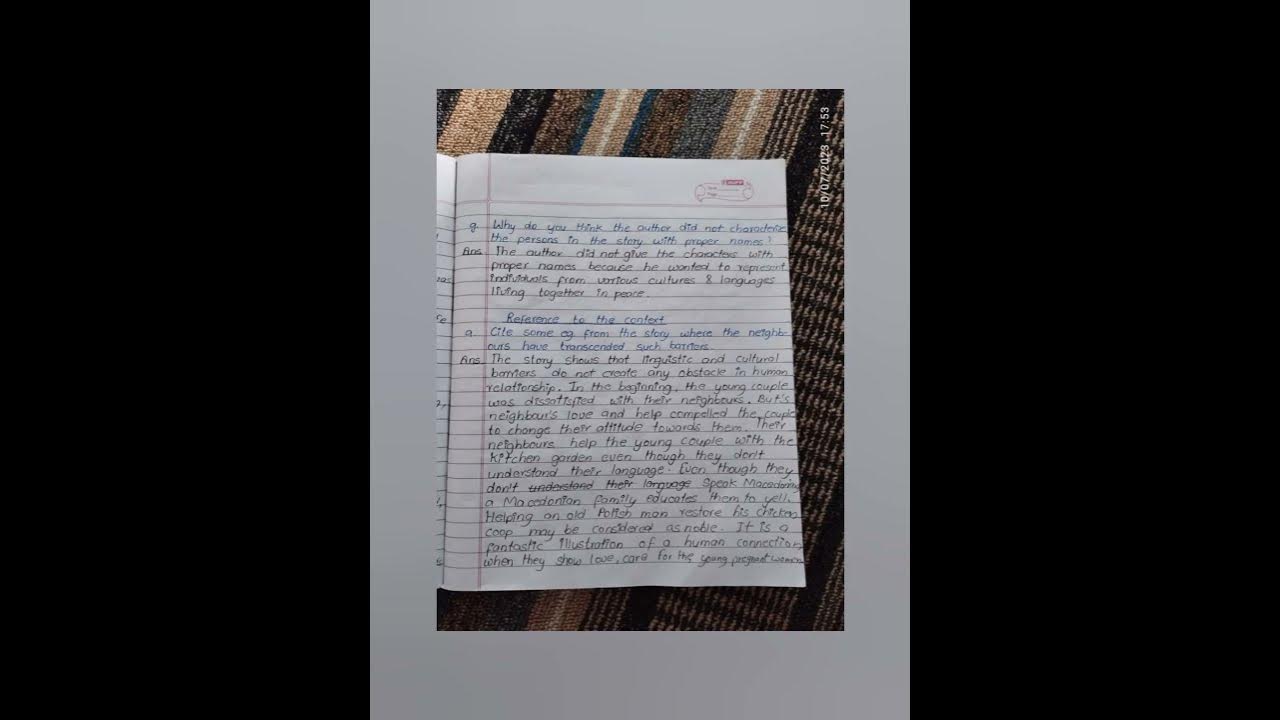 10/07/2023 17:53
g. Why do you think the author did not characterize
the persons in the story with proper names?
Ans The author did not give the characters with
proper names because he wanted to represent
individuals from various cultures & languages
living together in peace.
Reference to the context
a. Cite some eg. from the story where the neighb-
ours have transcended such barriers.
Ans The story shows that linguistic and cultural
barriers do not create any obstacle in human
relationship. In the beginning, the young couple
was dissatisfied with their neighbours. But's
neighbour's love and help compelled the couple
to change their attitude towards them. Their
neighbours help the young couple with the
kitchen garden even though they don't
understand their language. Even though they
don't understand their language speak Macedonian
a Macedonian family educates them to yell.
Helping an old Polish man restore his chicken
coop may be considered as noble. It is a
fantastic illustration of a human connection
when they show love, care for the young pregnant women